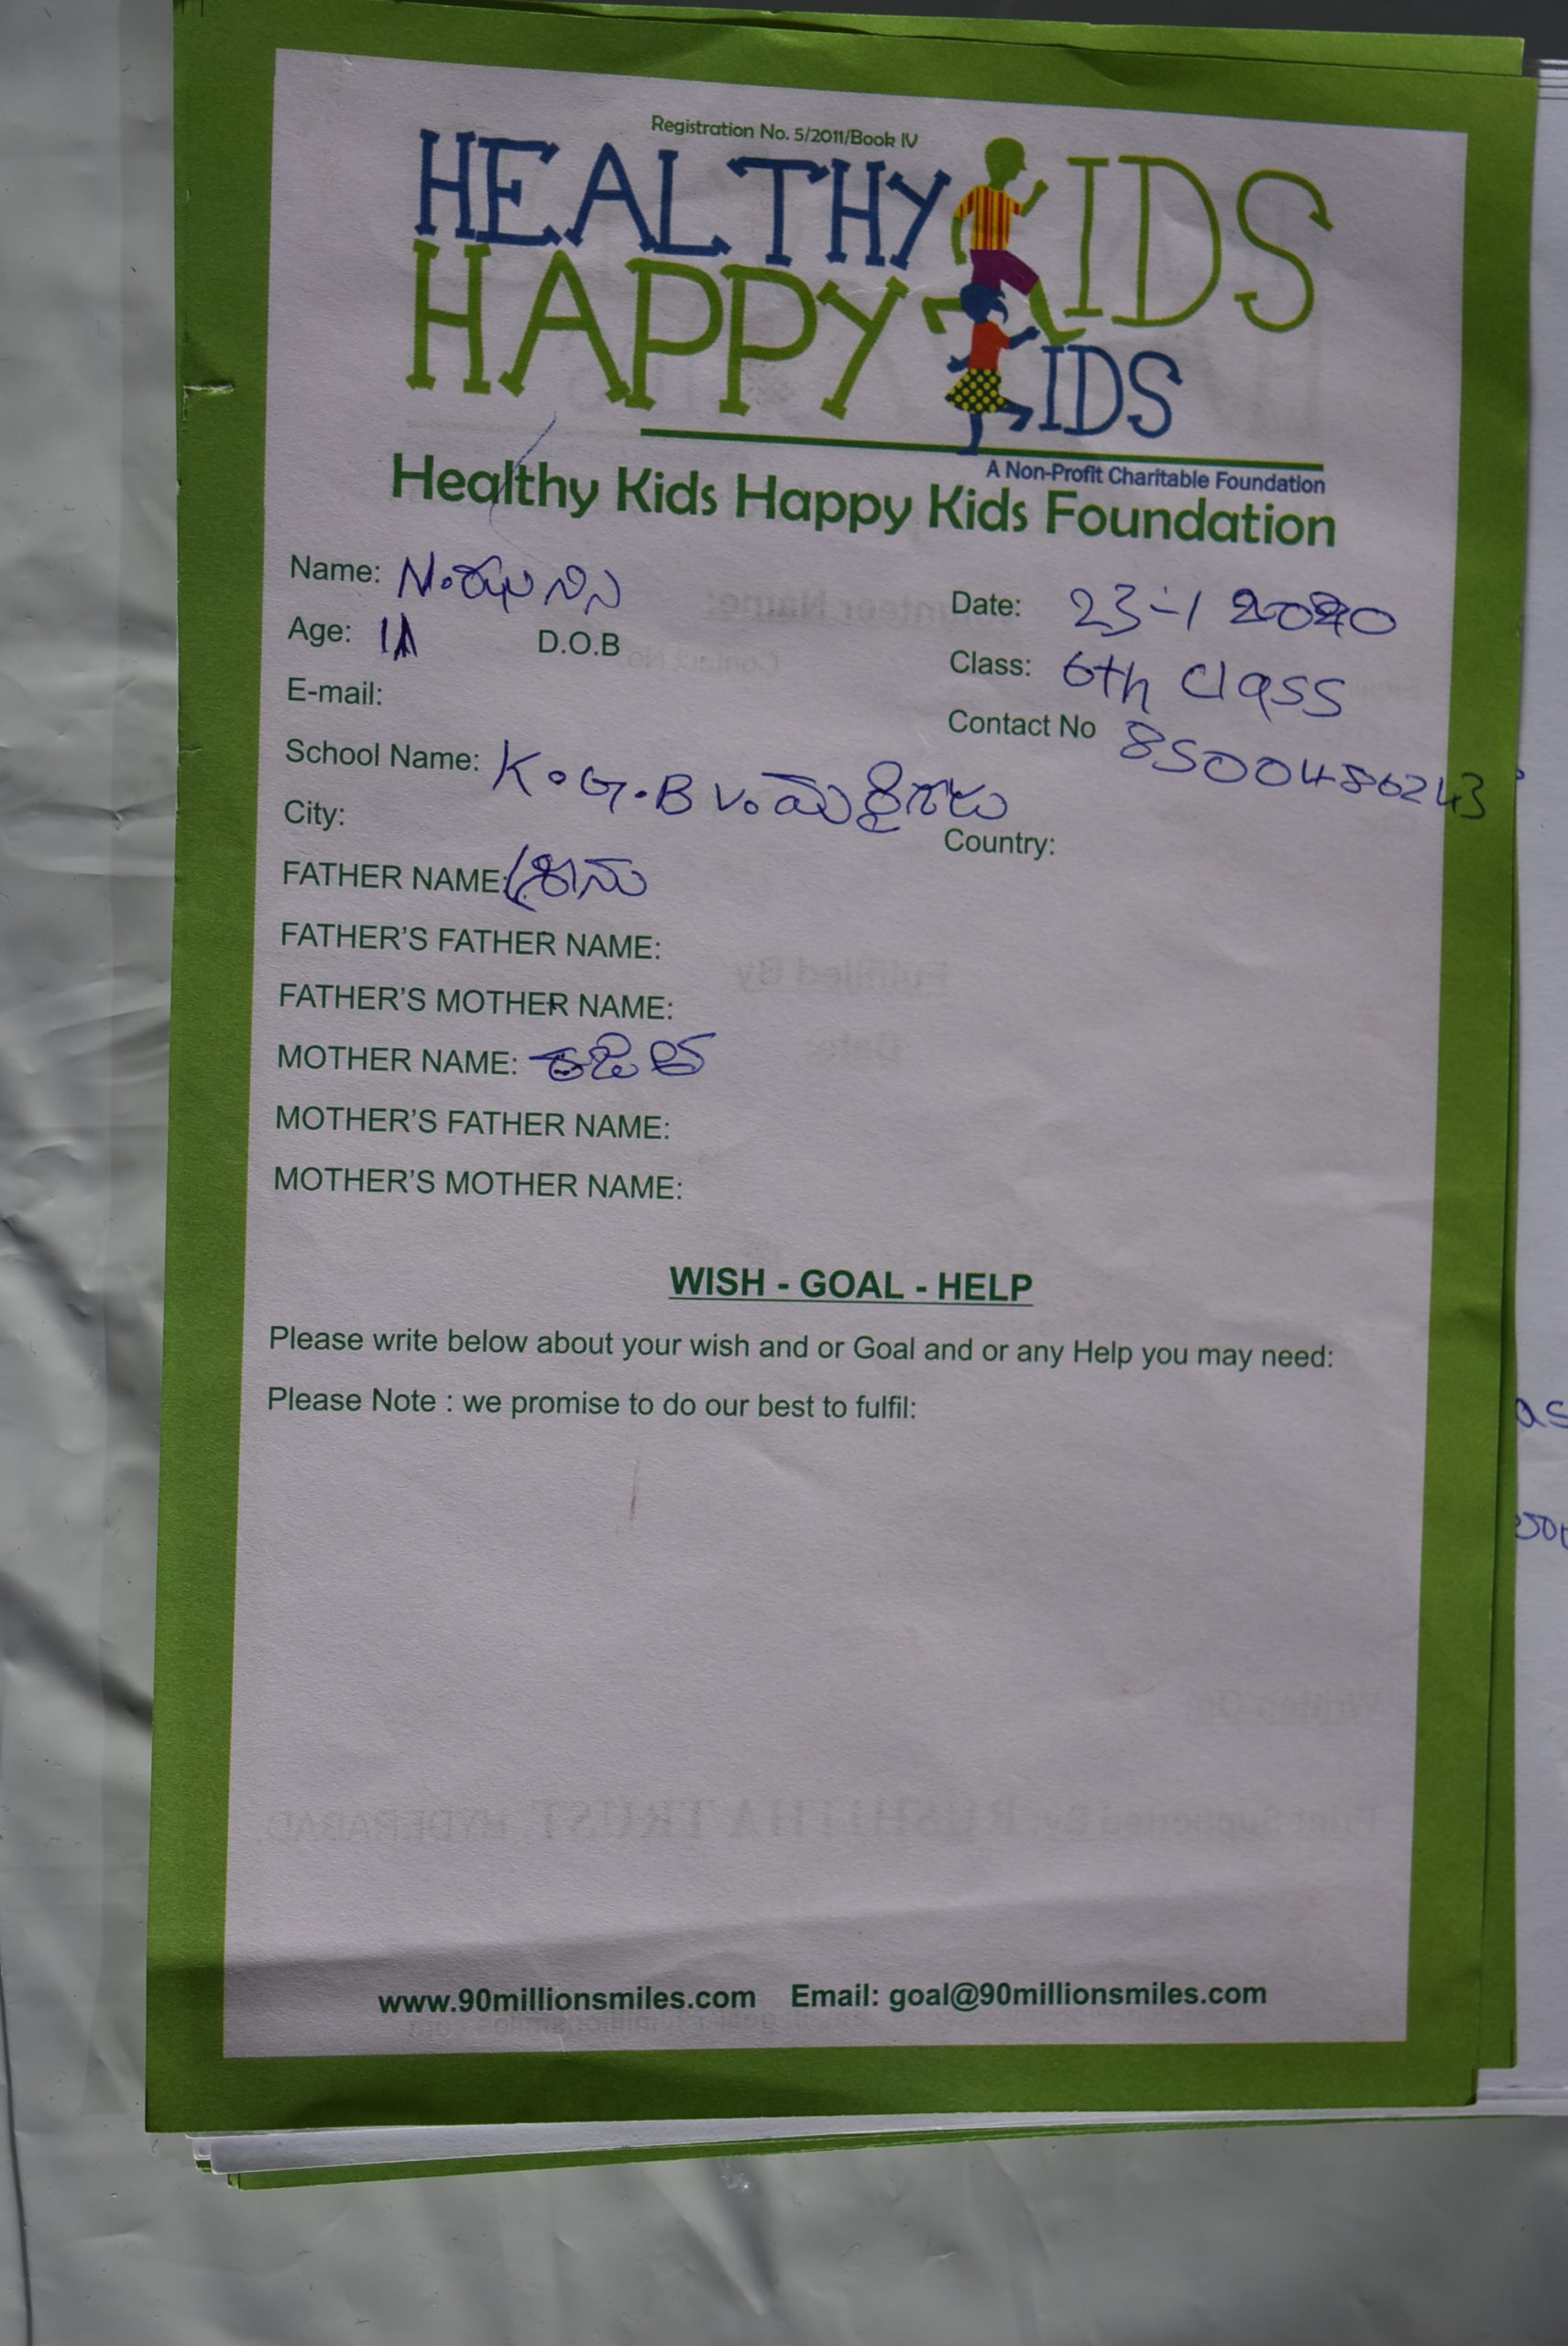 Registration No. 5/2011/Book IV
HEALTHY KIDS
HAPPY KIDS
A Non-Profit Charitable Foundation
Healthy Kids Happy Kids Foundation
Name: N. Date: 23-1 2020
Age: D.O.B Class: 6th class
E-mail: Contact No 8500486243
School Name: K.G.B V.
City: Country:
FATHER NAME: శ్రీను
FATHER'S FATHER NAME:
FATHER'S MOTHER NAME:
MOTHER NAME:
MOTHER'S FATHER NAME:
MOTHER'S MOTHER NAME:
WISH - GOAL - HELP
Please write below about your wish and or Goal and or any Help you may need:
Please Note : we promise to do our best to fulfil:
www.90millionsmiles.com Email: goal@90millionsmiles.com